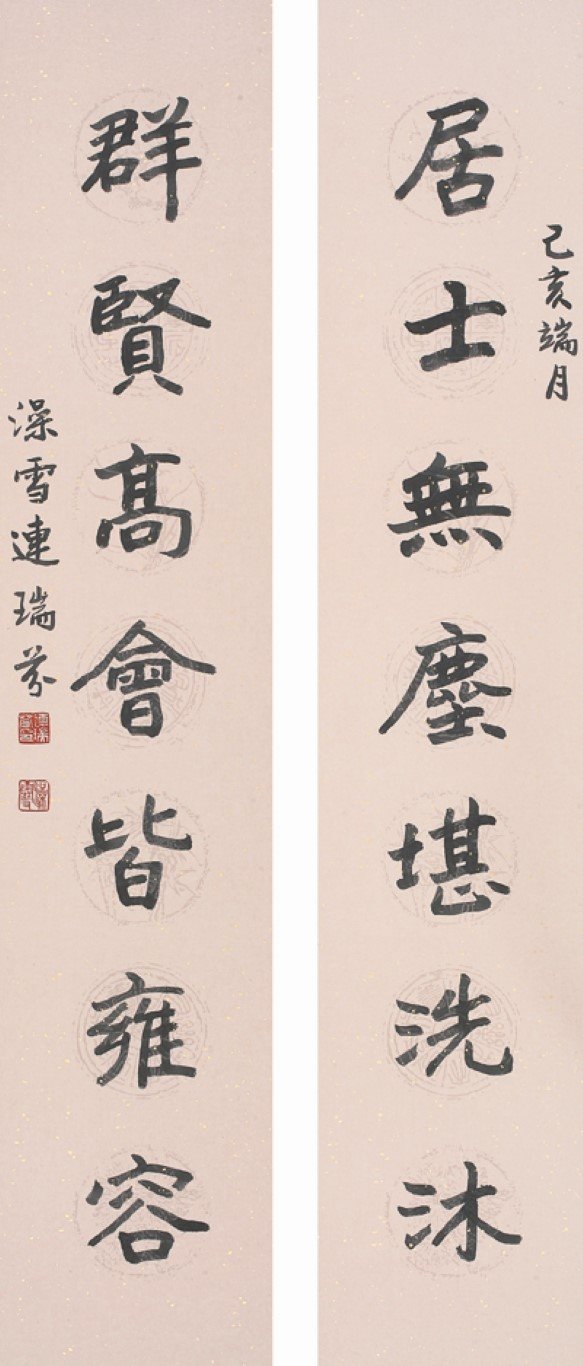 己亥端月
居士無塵堪洗沐
群賢高會皆雍容
澡雪連瑞芬